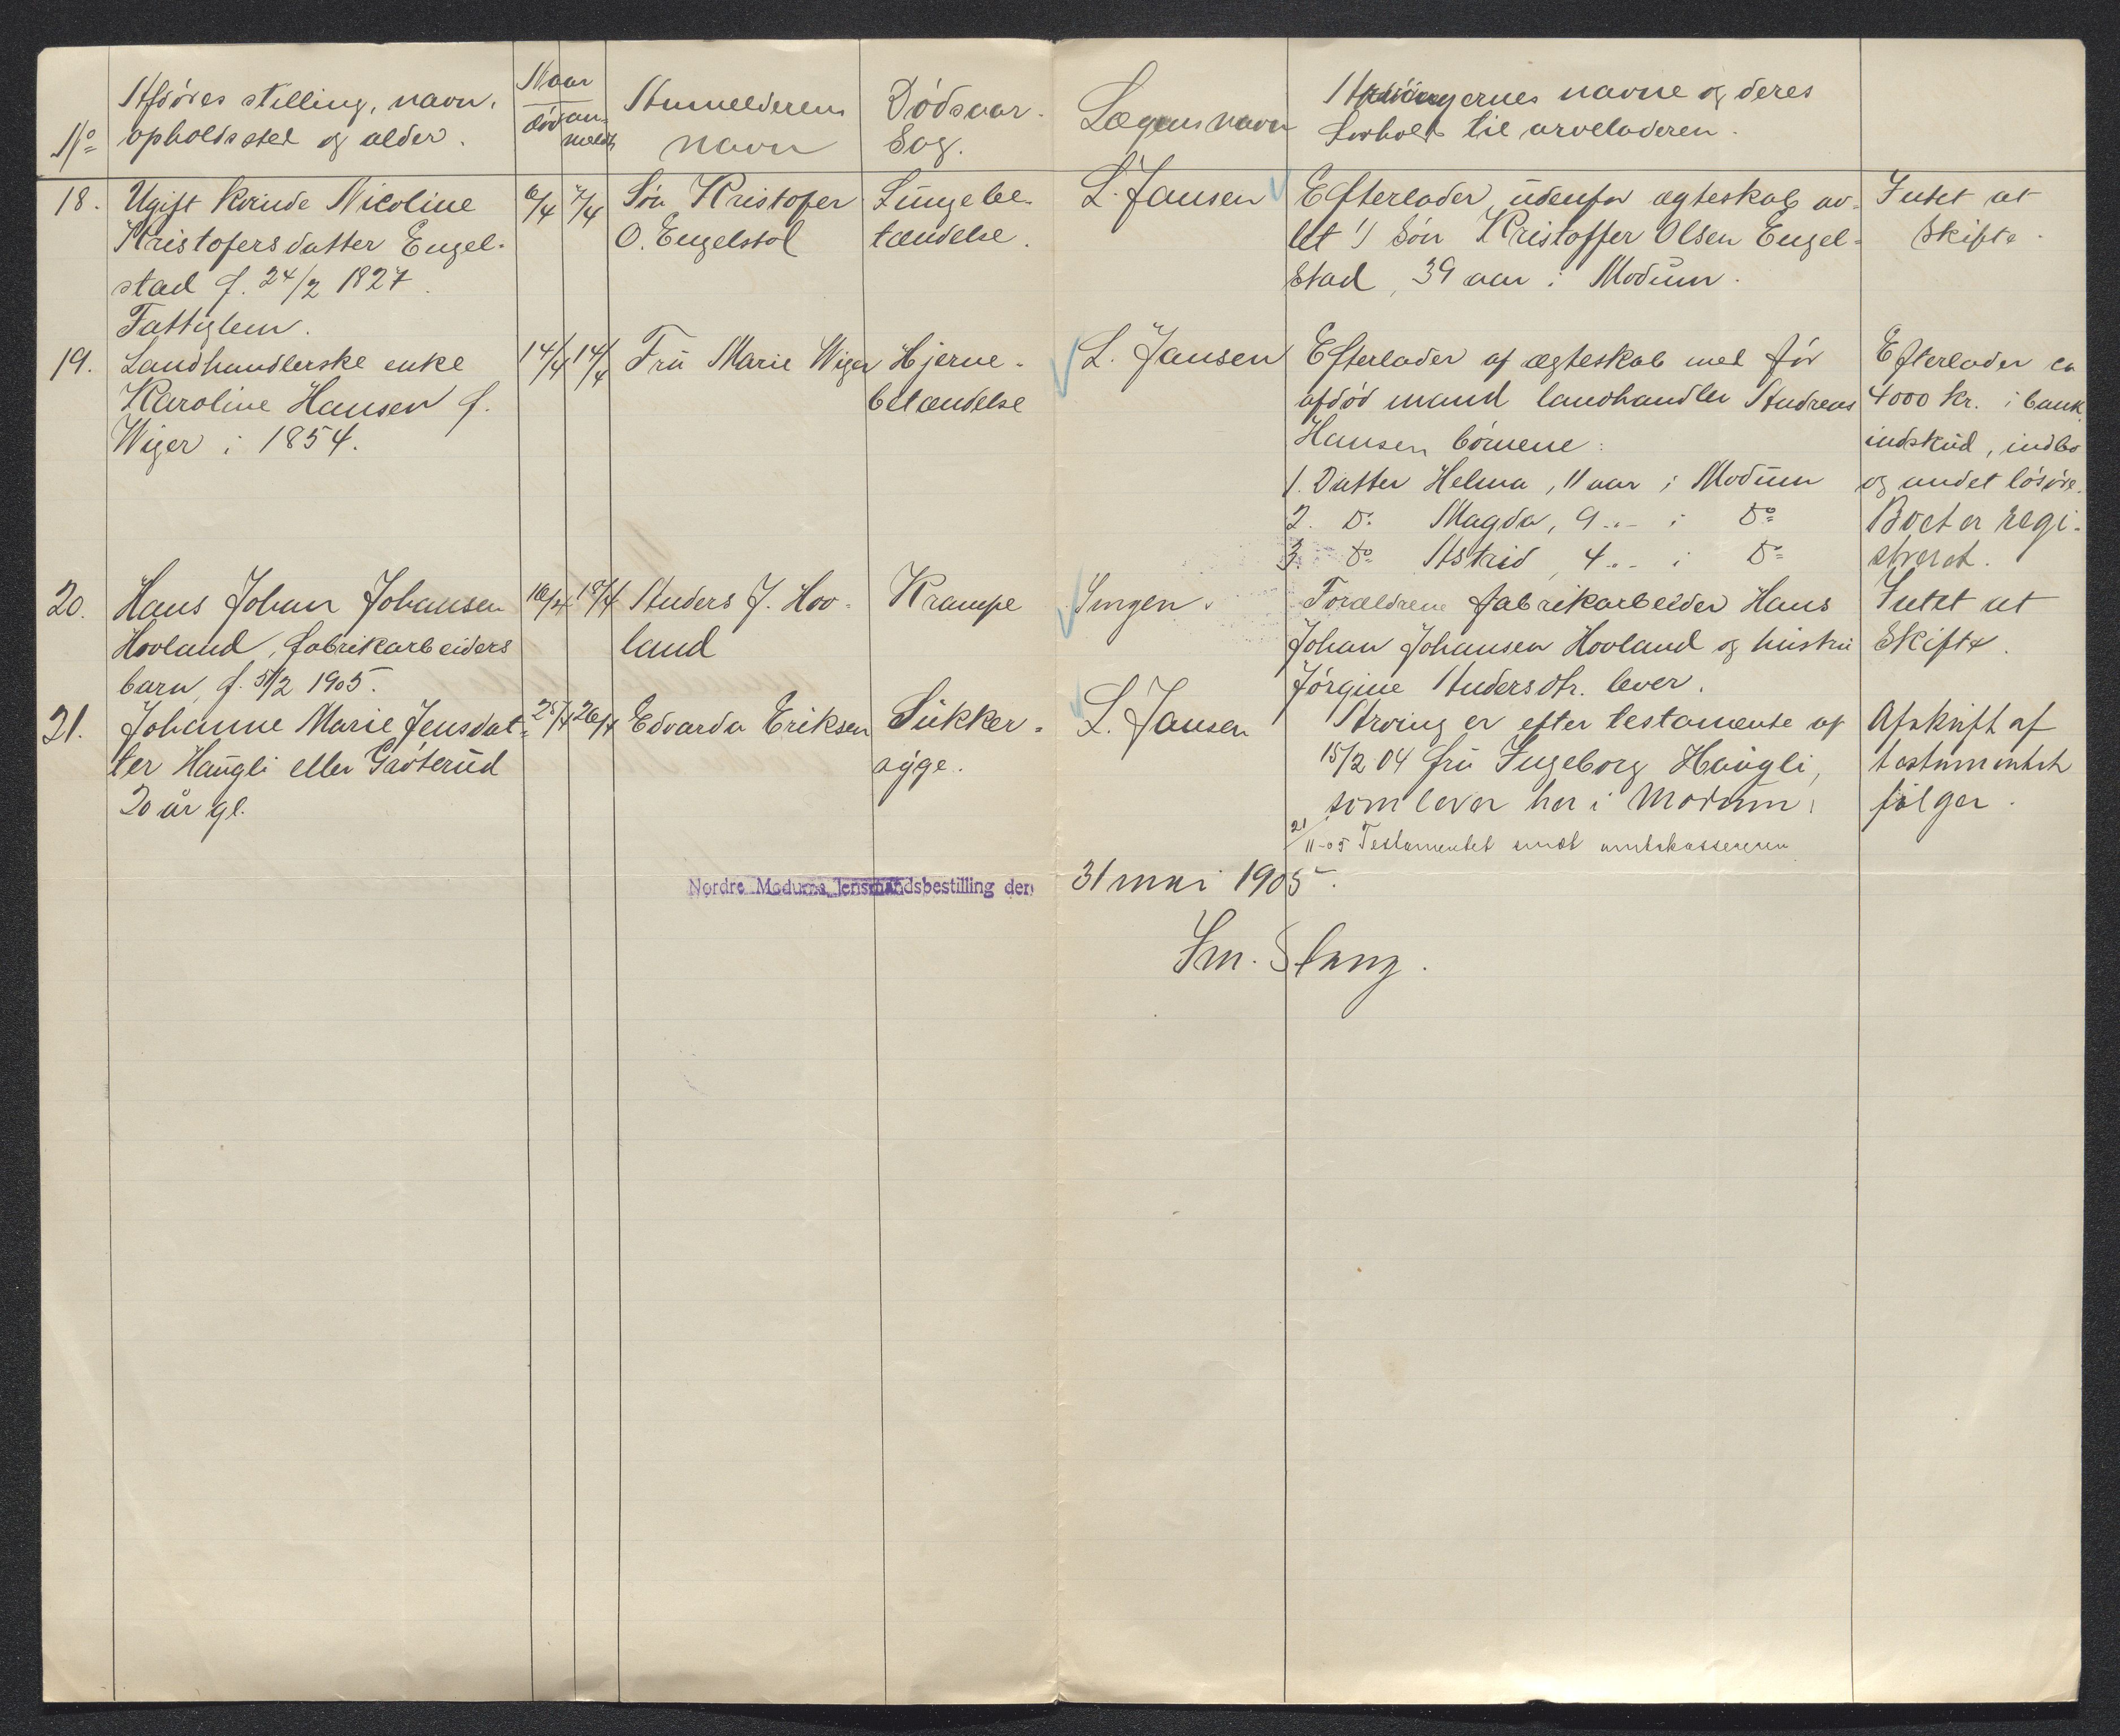 No
Afdødes stilling, navn,
opholdssted og alder.
Naar
død
an-
meldt
Anmelderens
navn
Dødsaar-
sag.
Lægens navn
Arvingernes navne og deres
forhold til arveladeren.
18.
Ugift kvinde Nicoline
Kristofersdatter Engel-
stad f. 24/2 1827.
Fattiglem.
6/4
7/4
Søn Kristofer
O. Engelstad
Lungebe-
tændelse.
L. Jansen
Efterlader udenfor ægteskab av-
let 1) søn Kristoffer Olsen Engel-
stad, 39 aar i Modum.
Intet at
skifte.
19.
Landhandlerske enke
Karoline Hansen f.
Wiger i 1854.
14/4
14/4
Fru Marie Wiger
Hjerne-
betændelse
L. Jansen
Efterlader af ægteskab med før
afdød mand landhandler Andreas
Hansen børnene:
1. Datter Helma, 11 aar i Modum
2. Do Magda, 9 " - i Do
3. Do Astrid, 4 " - i Do
Efterlader ca
4000 kr. i bank
indskud, indbo
og andet løsøre.
Boet er regi-
streret.
20.
Hans Johan Johansen
Hovland, fabrikarbeiders
barn, f. 5/2 1905.
16/4
18/4
Anders J. Hov-
land
Krampe
Ingen.
Forældrene fabrikarbeider Hans
Johan Johansen Hovland og hustru
Jørgine Andersdtr. lever.
Intet at
skifte.
21.
Johanne Marie Jensdat-
ter Haugli eller Grøterud
20 år gl.
25/4
26/4
Edvarda Eriksen
Sukker-
syge.
L. Jansen
Arving er efter testamente af
15/2 04 fru Ingeborg Haugli,
som lever her i Modum.
21/11-05 Testamentet sendt amtskassereren
Afskrift af
testamentet
følger.
Nordre Modums lensmandsbestilling den
31 mai 1905.
Sm. Stang.